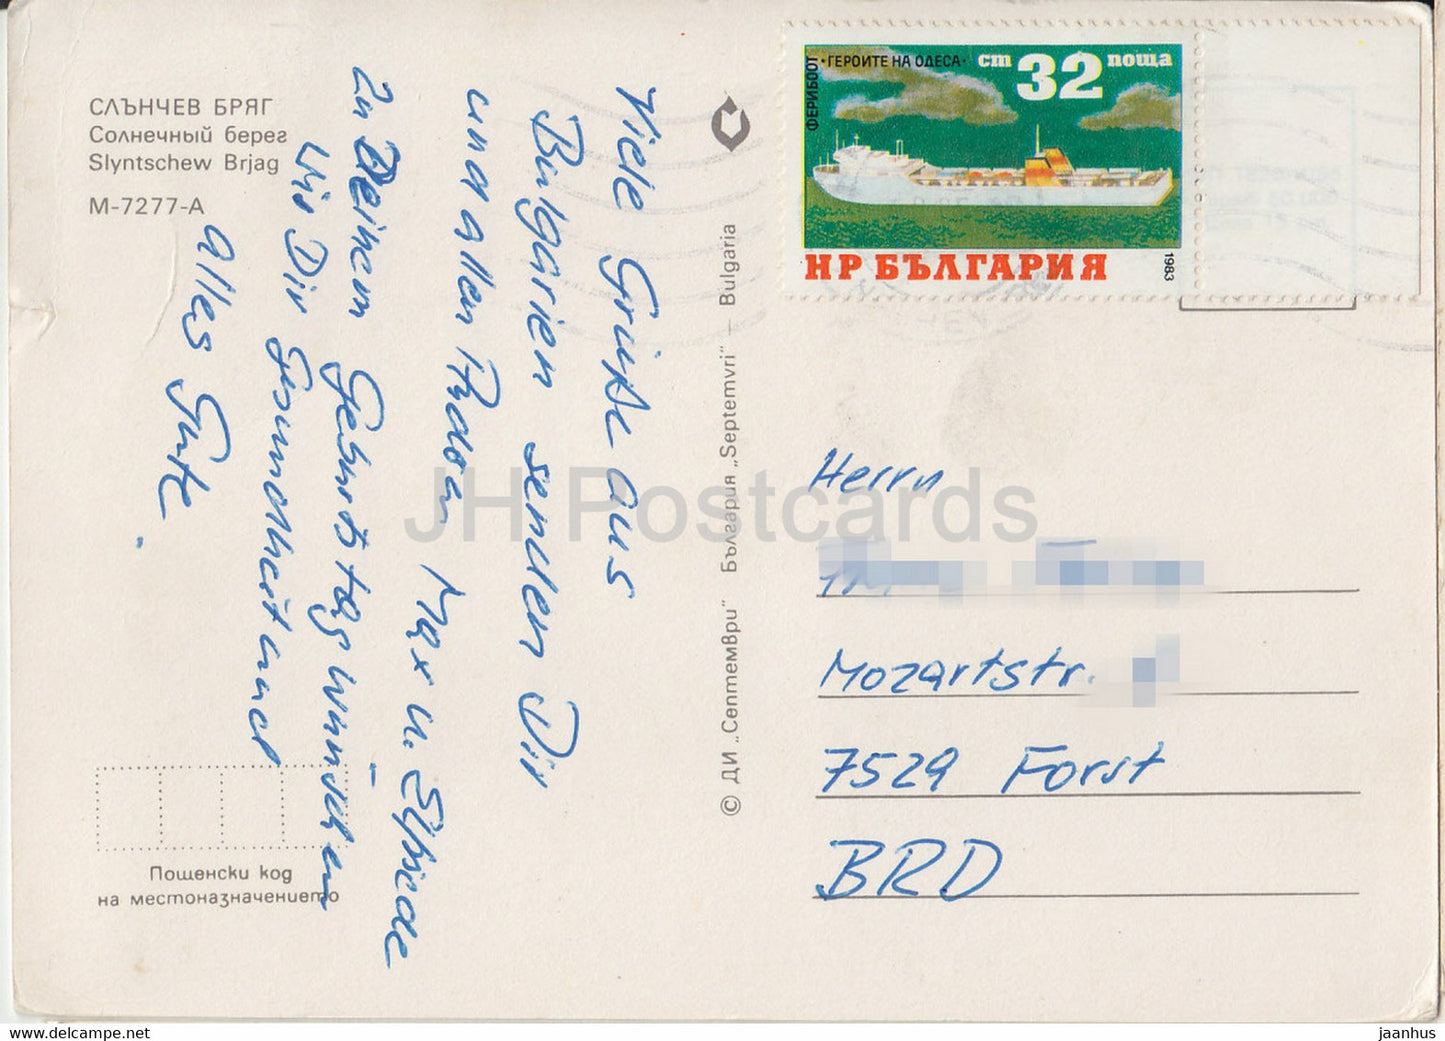 СЛЪНЧЕВ БРЯГ
Солнечный берег
Slyntschew Brjag
М-7277-А
Viele Grüße aus
Bulgarien senden Dir
und allen
Max u.
Zu Deinem Geburtstag wünschen
wir Dir Gesundheit und
alles Gute
Пощенски код
на местоназначението
© ДИ „Септември“ България „Septemvri“ — Bulgaria
ФЕРИБООТ
·ГЕРОИТЕ НА ОДЕСА·
ст 32 поща
НР БЪЛГАРИЯ
1983
Herrn
Mozartstr.
7529 Forst
BRD
JH Postcards
jaanhus © delcampe.net